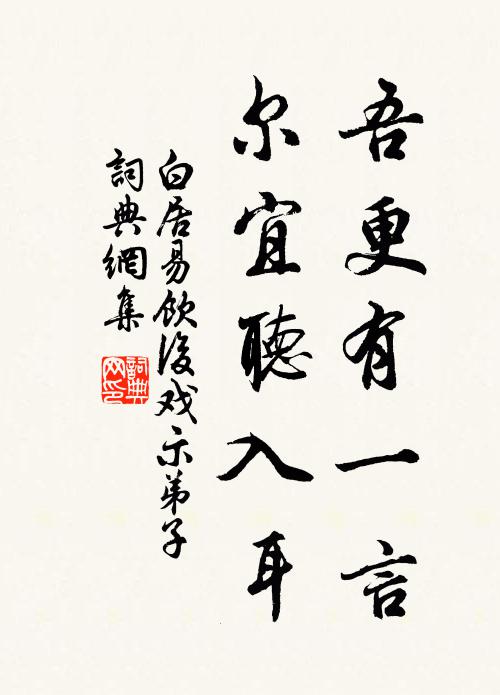 吾更有一言
尔宜聽入耳
白居易飲後戏示弟子
詞典網集
詞典
网印